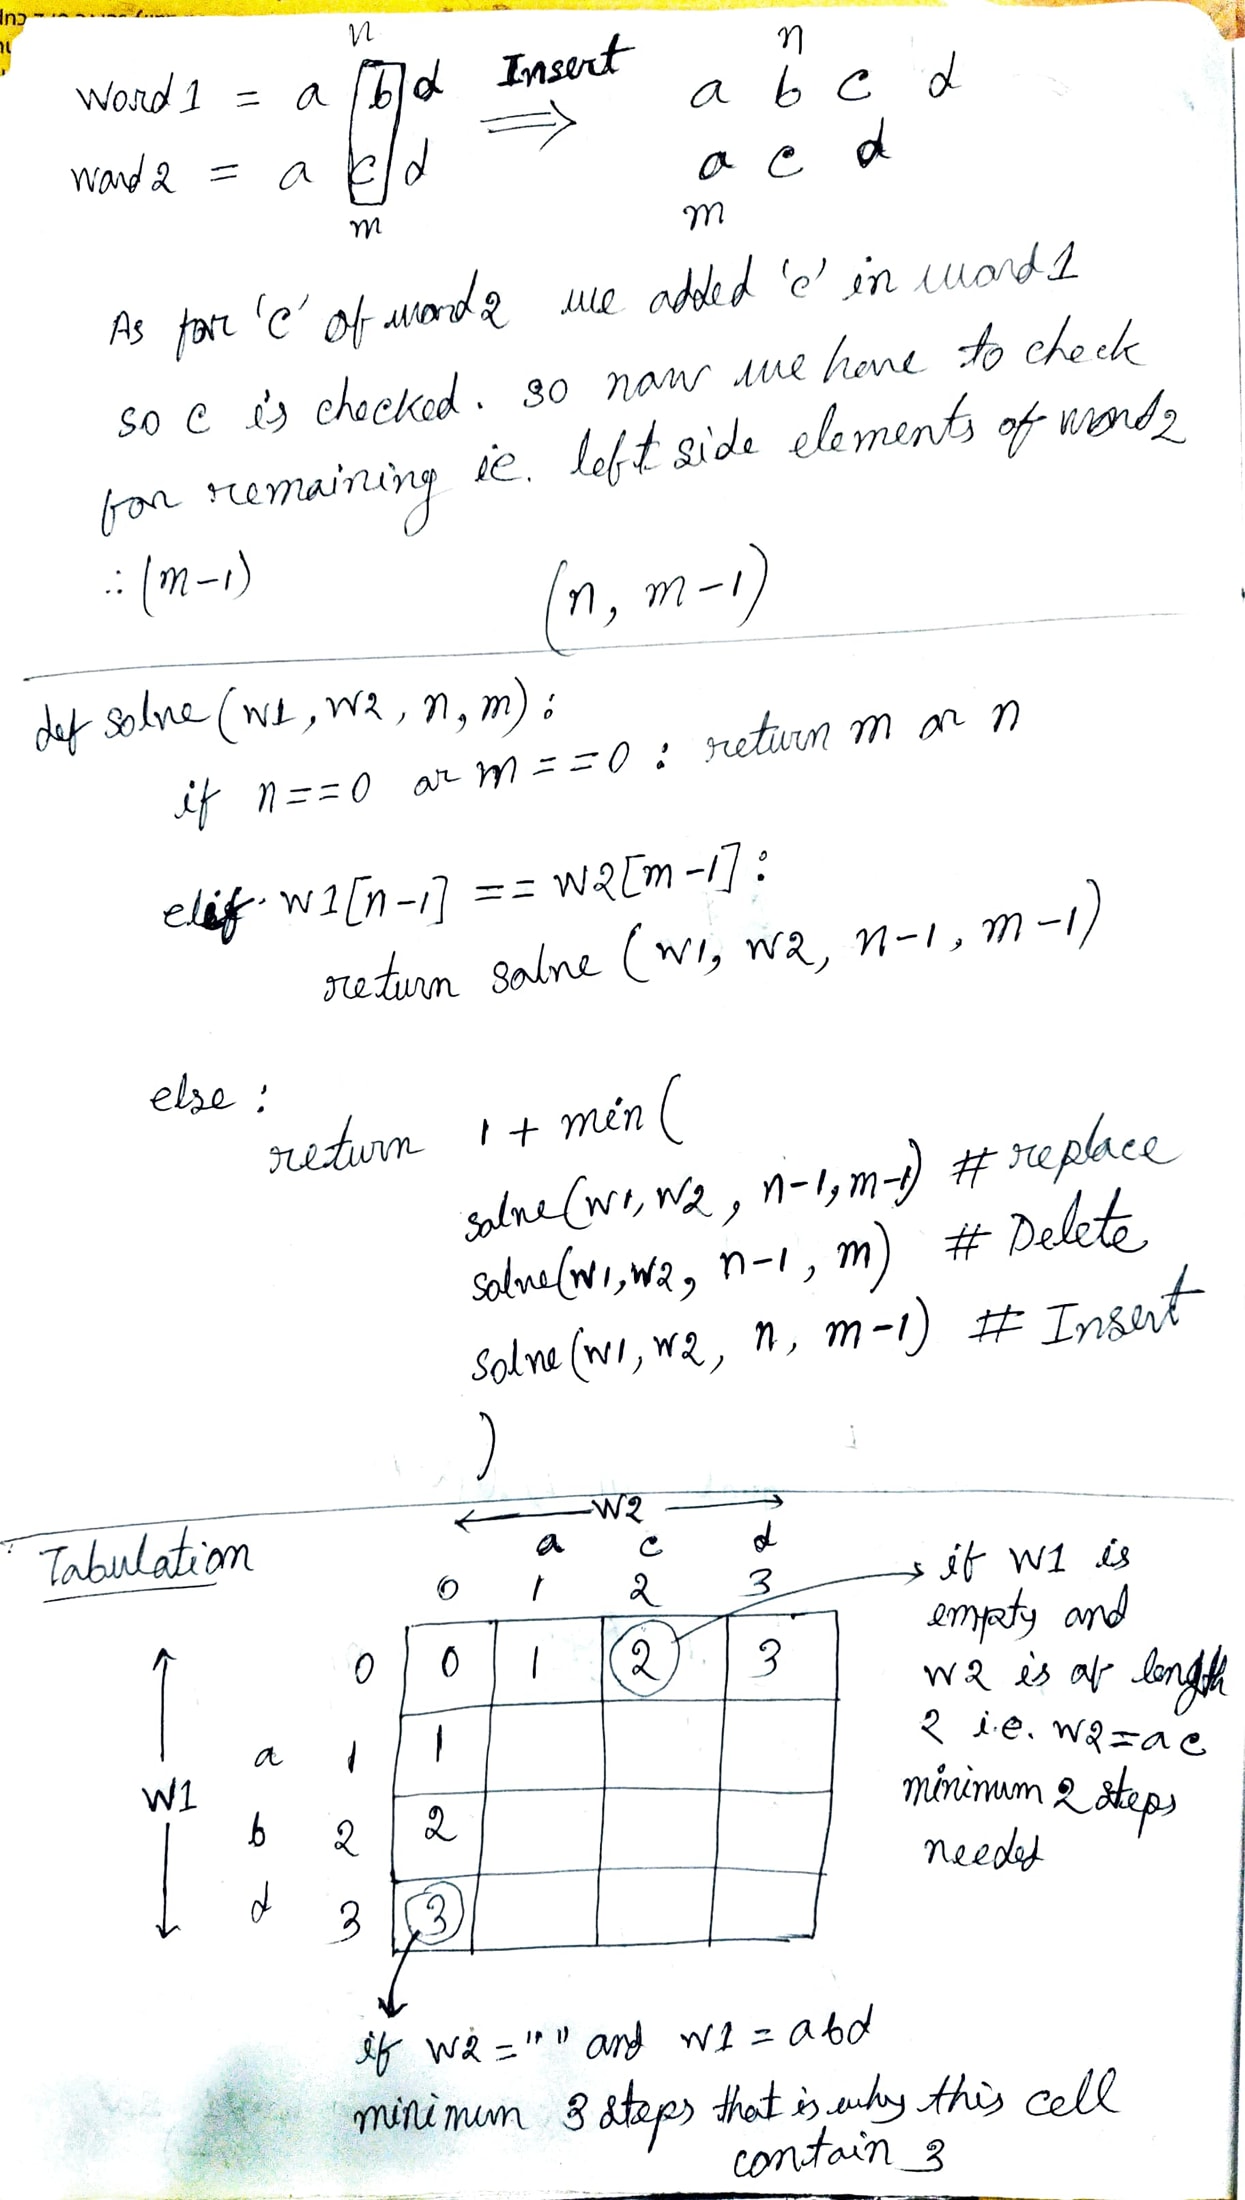 n
word 1 = a b d Insert ⟹
n
a b c d
word 2 = a c d
a c d
m
m
As for 'c' of word 2 we added 'c' in word 1
so c is checked. so now we have to check
for remaining ie. left side elements of word 2
∴ (m-1) (n, m-1)
def solve (w1, w2, n, m):
if n==0 or m==0 : return m or n
elif w1[n-1] == w2[m-1]:
return solve (w1, w2, n-1, m-1)
else :
return 1 + min (
solve(w1, w2, n-1, m-1) # replace
solve(w1, w2, n-1, m) # Delete
solve (w1, w2, n, m-1) # Insert
)
Tabulation
W2
a c d
0 1 2 3
0 0 1 2 3
a 1 1
W1
b 2 2
d 3 3
if w1 is
empty and
w2 is of length
2 i.e. w2=ac
minimum 2 steps
needed
if w2 = "" and w1 = abd
minimum 3 steps that is why this cell
contain 3